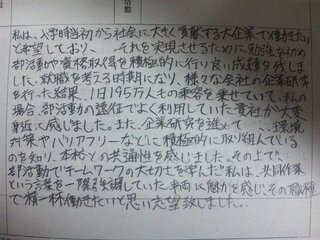 活動
私は、入学時当初から社会に大きく貢献する大企業で働きたい
と希望しており、、それを実現させるために勉強を初め
部活動や資格取得を積極的に行い良い成績を残しま
した。就職を考える時期になり、様々な会社の企業研究
を行った結果、1日195万人もの乗客を乗せていて、私の
場合、部活動の遠征でよく利用していた貴社が大変
身近に感じました。また、企業研究を進めて、、環境
対策やバリアフリーなどに積極的に取り組んでいる
のを知り、本校との共通性を感じました。その上で
部活動でチームワークの大切さを学んだ私は、共同作業
という言葉を一際強調していた車両に魅力を感じ、その職種
で精一杯働きたいと思い志望致しました。